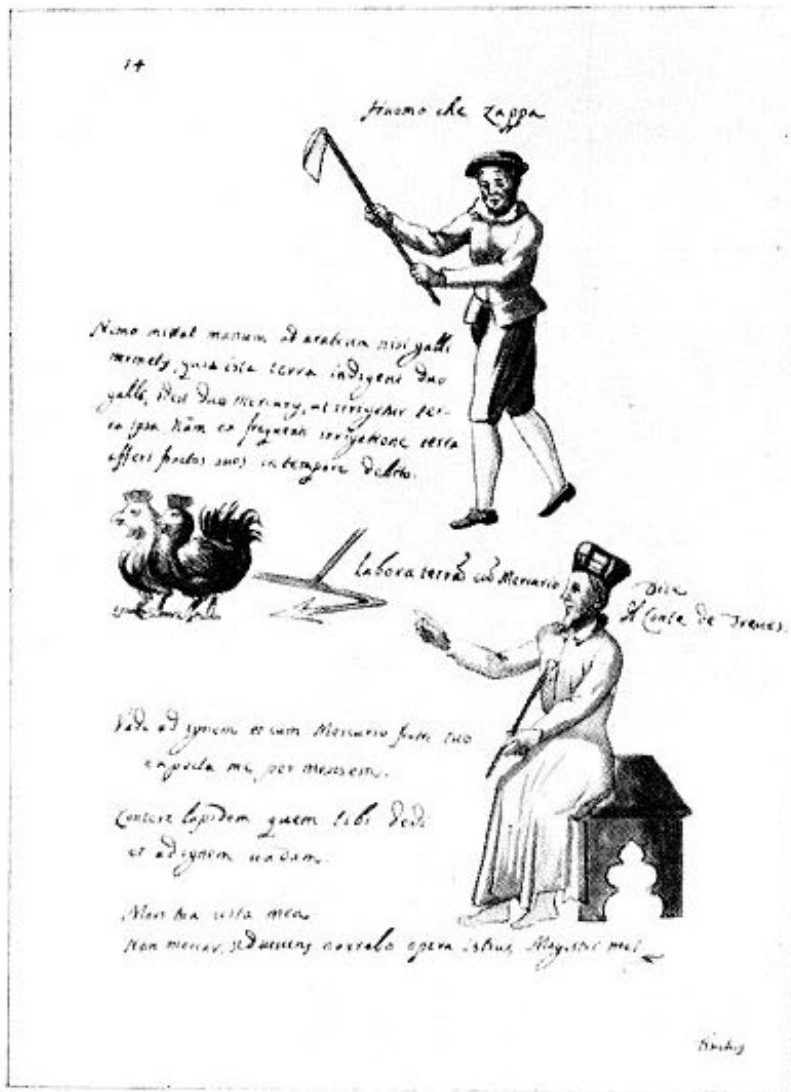 14
Huomo che zappa
Nemo mittat manum ad aratrum nisi galli
quia ista terra indigent duo
galli, idest duo Mercurij, ut irrigetur ter-
ra ipsa Nam ex frequenti irrigatione terra
affert fructus suos in tempore debito.
Labora terrã cũ Mercurio
Dice
il Conte de Treves.
Vade ad ignem et cum Mercurio fratre tuo
expecta me per mensem.
Contere lapidem quem tibi dedi
et ad ignem vadam.
Mors tua vita mea
Non morior, sed vivens narrabo opera istius Magistri mei